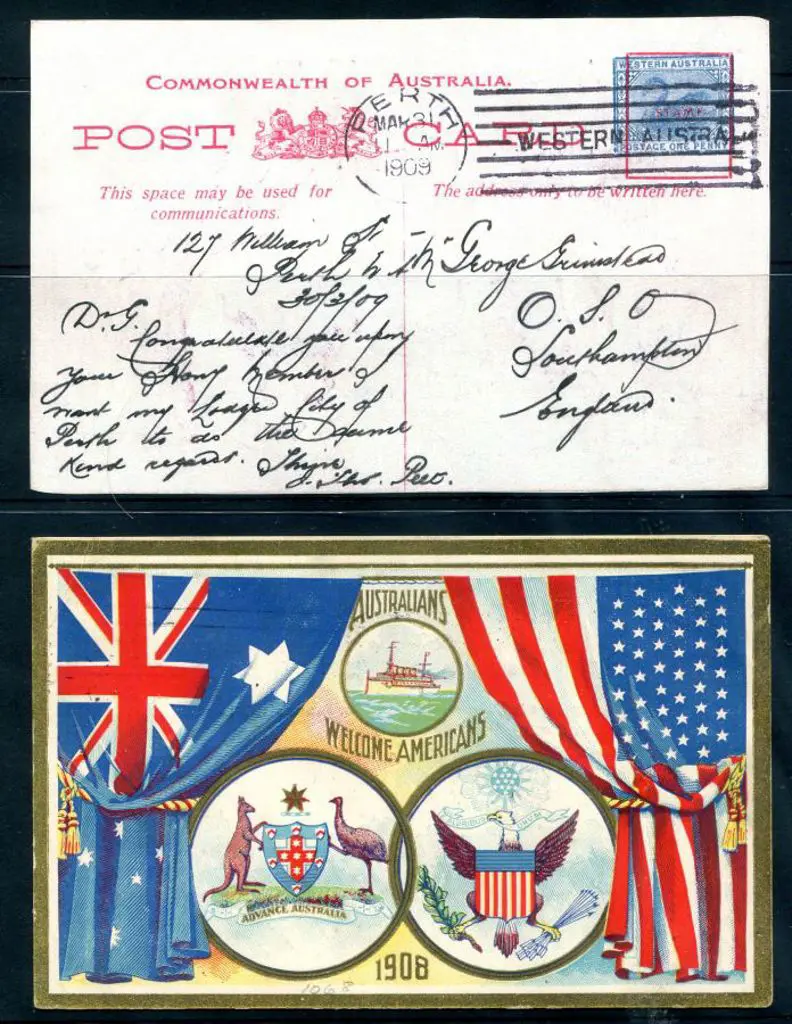 COMMONWEALTH OF AUSTRALIA.
POST CARD
PERTH
MAR 31
AM
1909
WESTERN AUSTRAL
WESTERN AUSTRALIA
STAMP
POSTAGE ONE PENNY
This space may be used for
communications.
The address only to be written here.
127 William St
Perth W A
30/3/09
Dr G.
Congratulate you upon
your Hony Member &
want my Lodge City of
Perth to do the same
Kind regards. Thine
Thos. Peet.
Mr George Grimstead
O. S. O
Southampton
England.
AUSTRALIANS
WELCOME AMERICANS
ADVANCE AUSTRALIA
UNUM
1908
1068